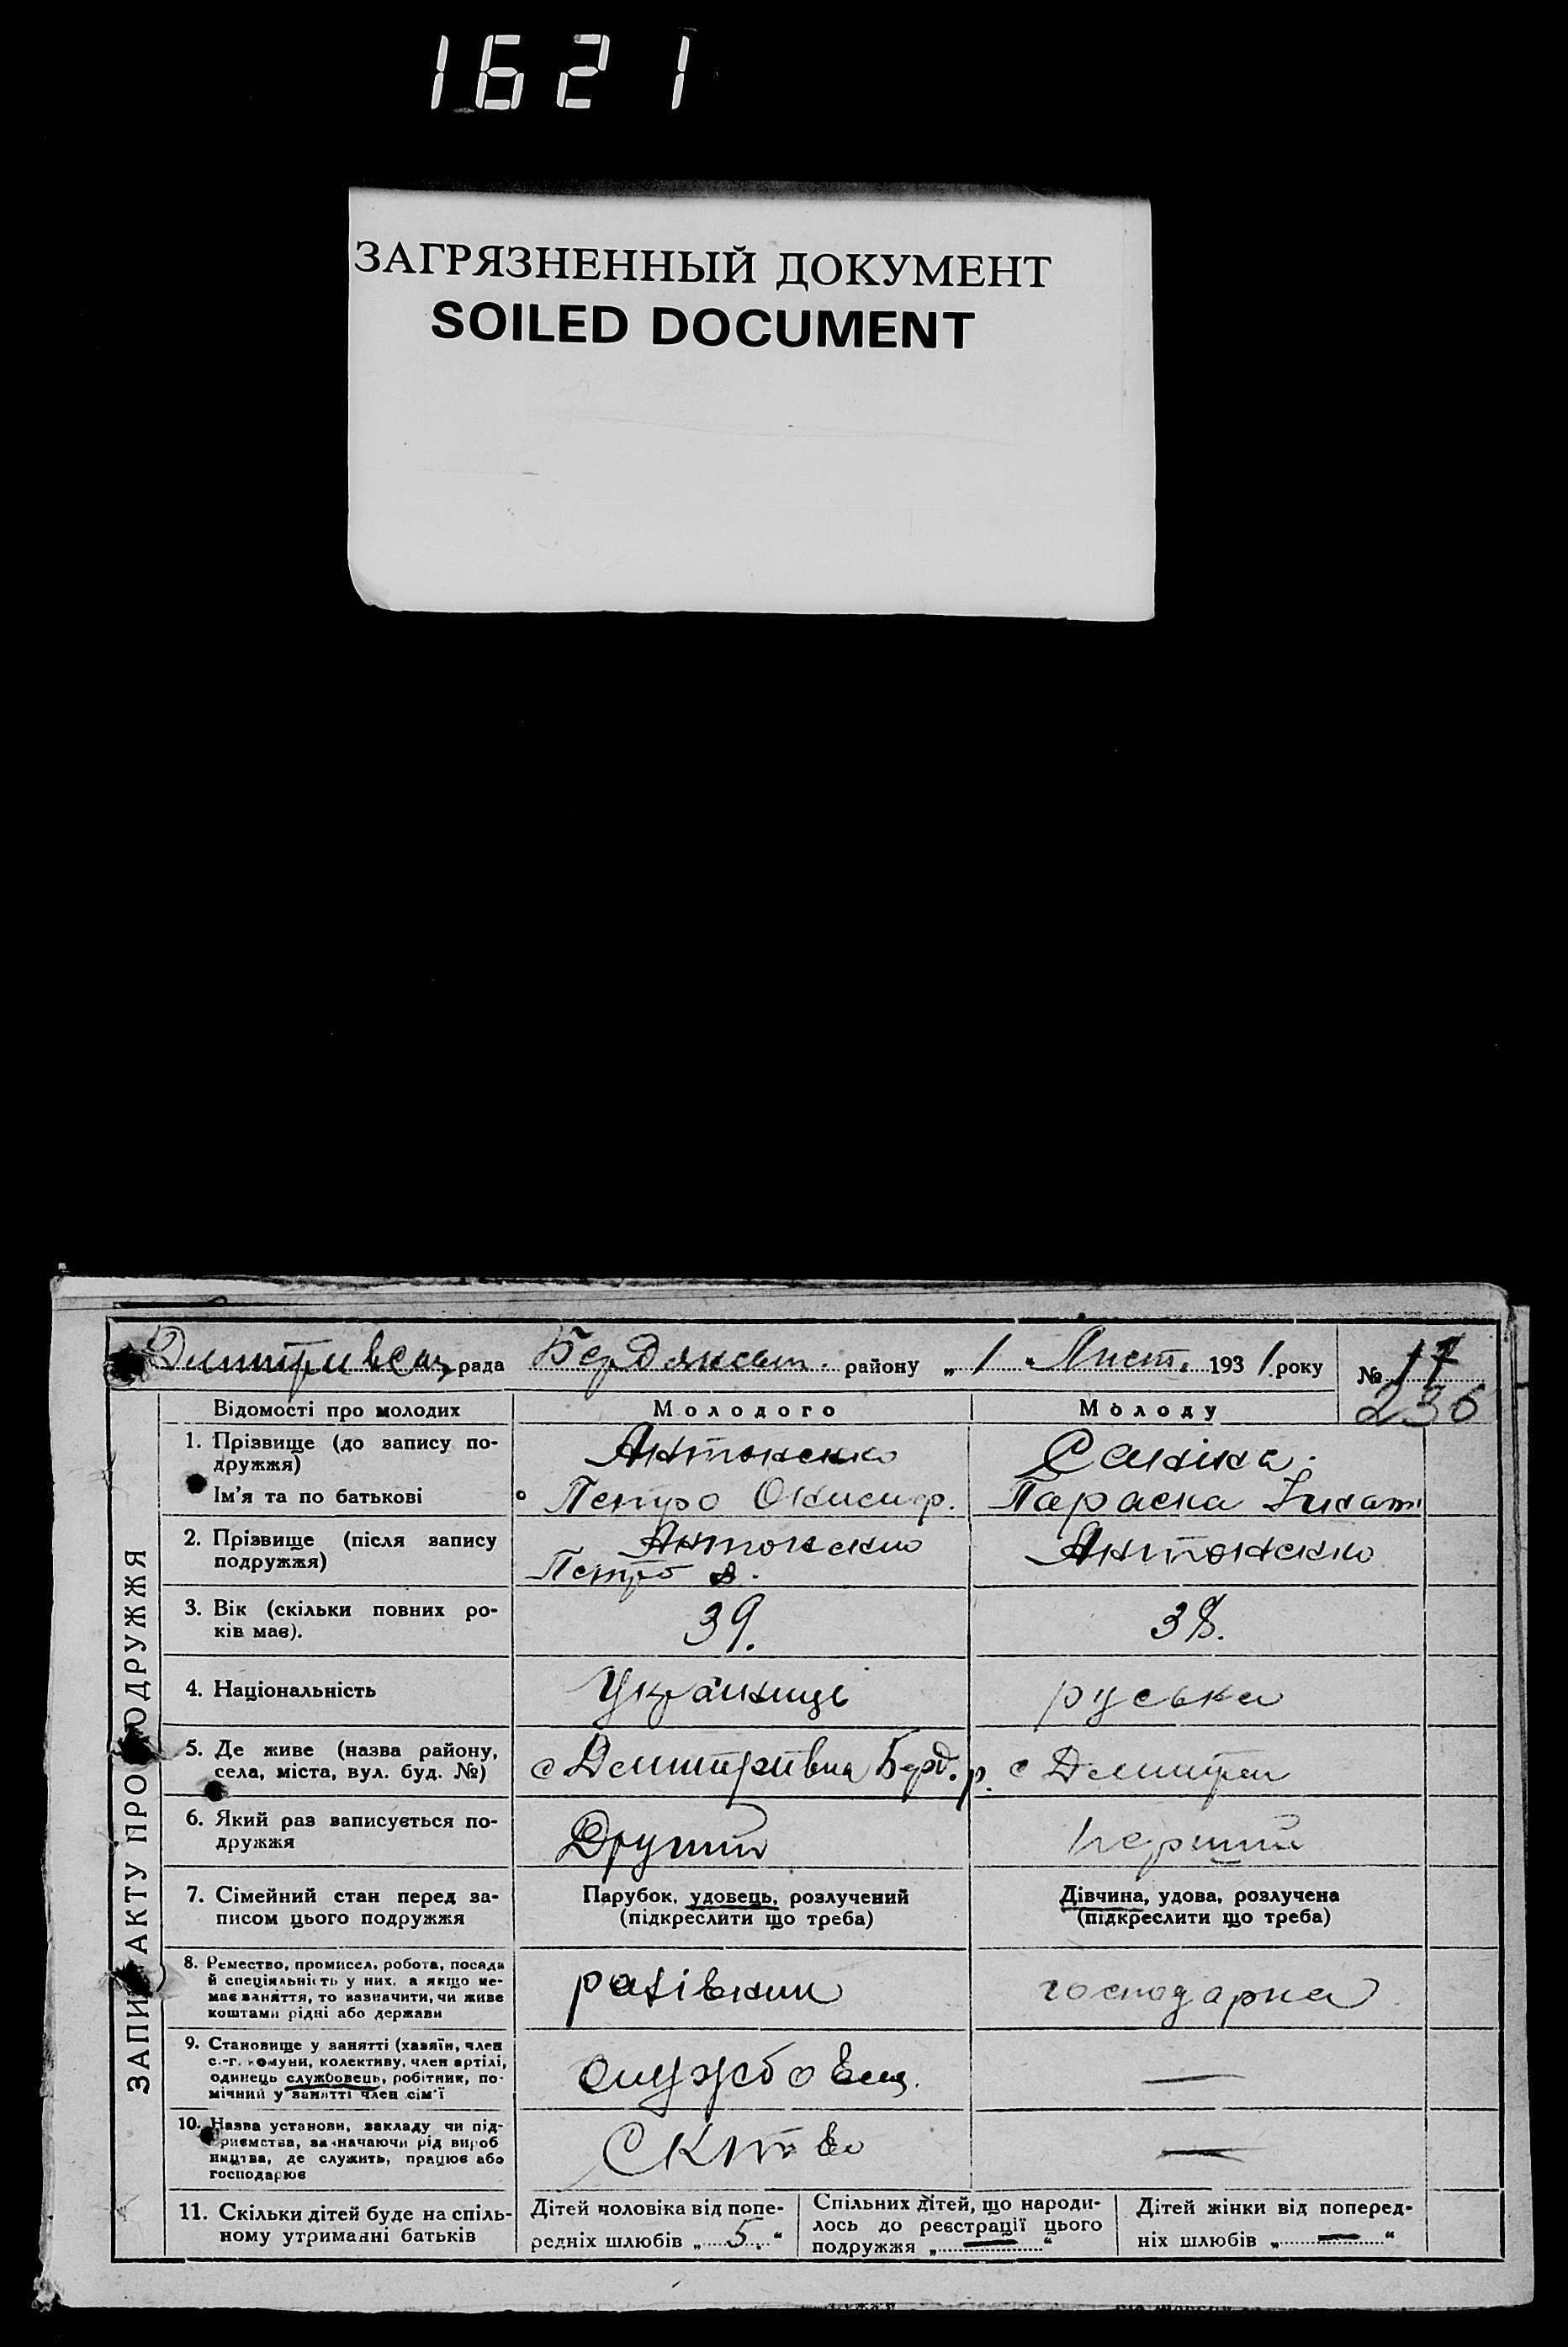 1621
ЗАГРЯЗНЕННЫЙ ДОКУМЕНТ
SOILED DOCUMENT
рада Бердянськ. району „1„ Лист. 1931 року № 17
236
ЗАПИС АКТУ ПРО ОДРУЖЖЯ
Відомості про молодих Молодого Молоду
1. Прізвище (до запису по-
дружжя)
Антоненко Саніна.
Ім'я та по батькові Петро Онисифр. Параска Ігнат
2. Прізвище (після запису
подружжя)
Антоненко Антоненко
Петро
3. Вік (скільки повних ро-
ків має).
39. 38.
4. Національність Українець руська
5. Де живе (назва району,
села, міста, вул. буд. №)
с Дмитрівка Берд. р. с Дмитрів
6. Який раз записується по-
дружжя
Другий перший
7. Сімейний стан перед за-
писом цього подружжя
Парубок, удовець, розлучений
(підкреслити що треба)
Дівчина, удова, розлучена
(підкреслити що треба)
8. Ремество, промисел, робота, посада
й спеціяльність у них, а якщо не-
має заняття, то зазначити, чи живе
коштами рідні або держави
господарка
9. Становище у занятті (хазяїн, член
с.-г. комуни, колективу, член артілі,
одинець службовець, робітник, по-
мічний у занятті член сім'ї
службовец. —
10. Назва установи, закладу чи під-
приємства, зазначаючи рід вироб
ництва, де служить, працює або
господарює
—
11. Скільки дітей буде на спіль-
ному утриманні батьків
Дітей чоловіка від попе-
редніх шлюбів „ 5. “
Спільних дітей, що народи-
лось до реєстрації цього
подружжя „ — “
Дітей жінки від поперед-
ніх шлюбів „ — “